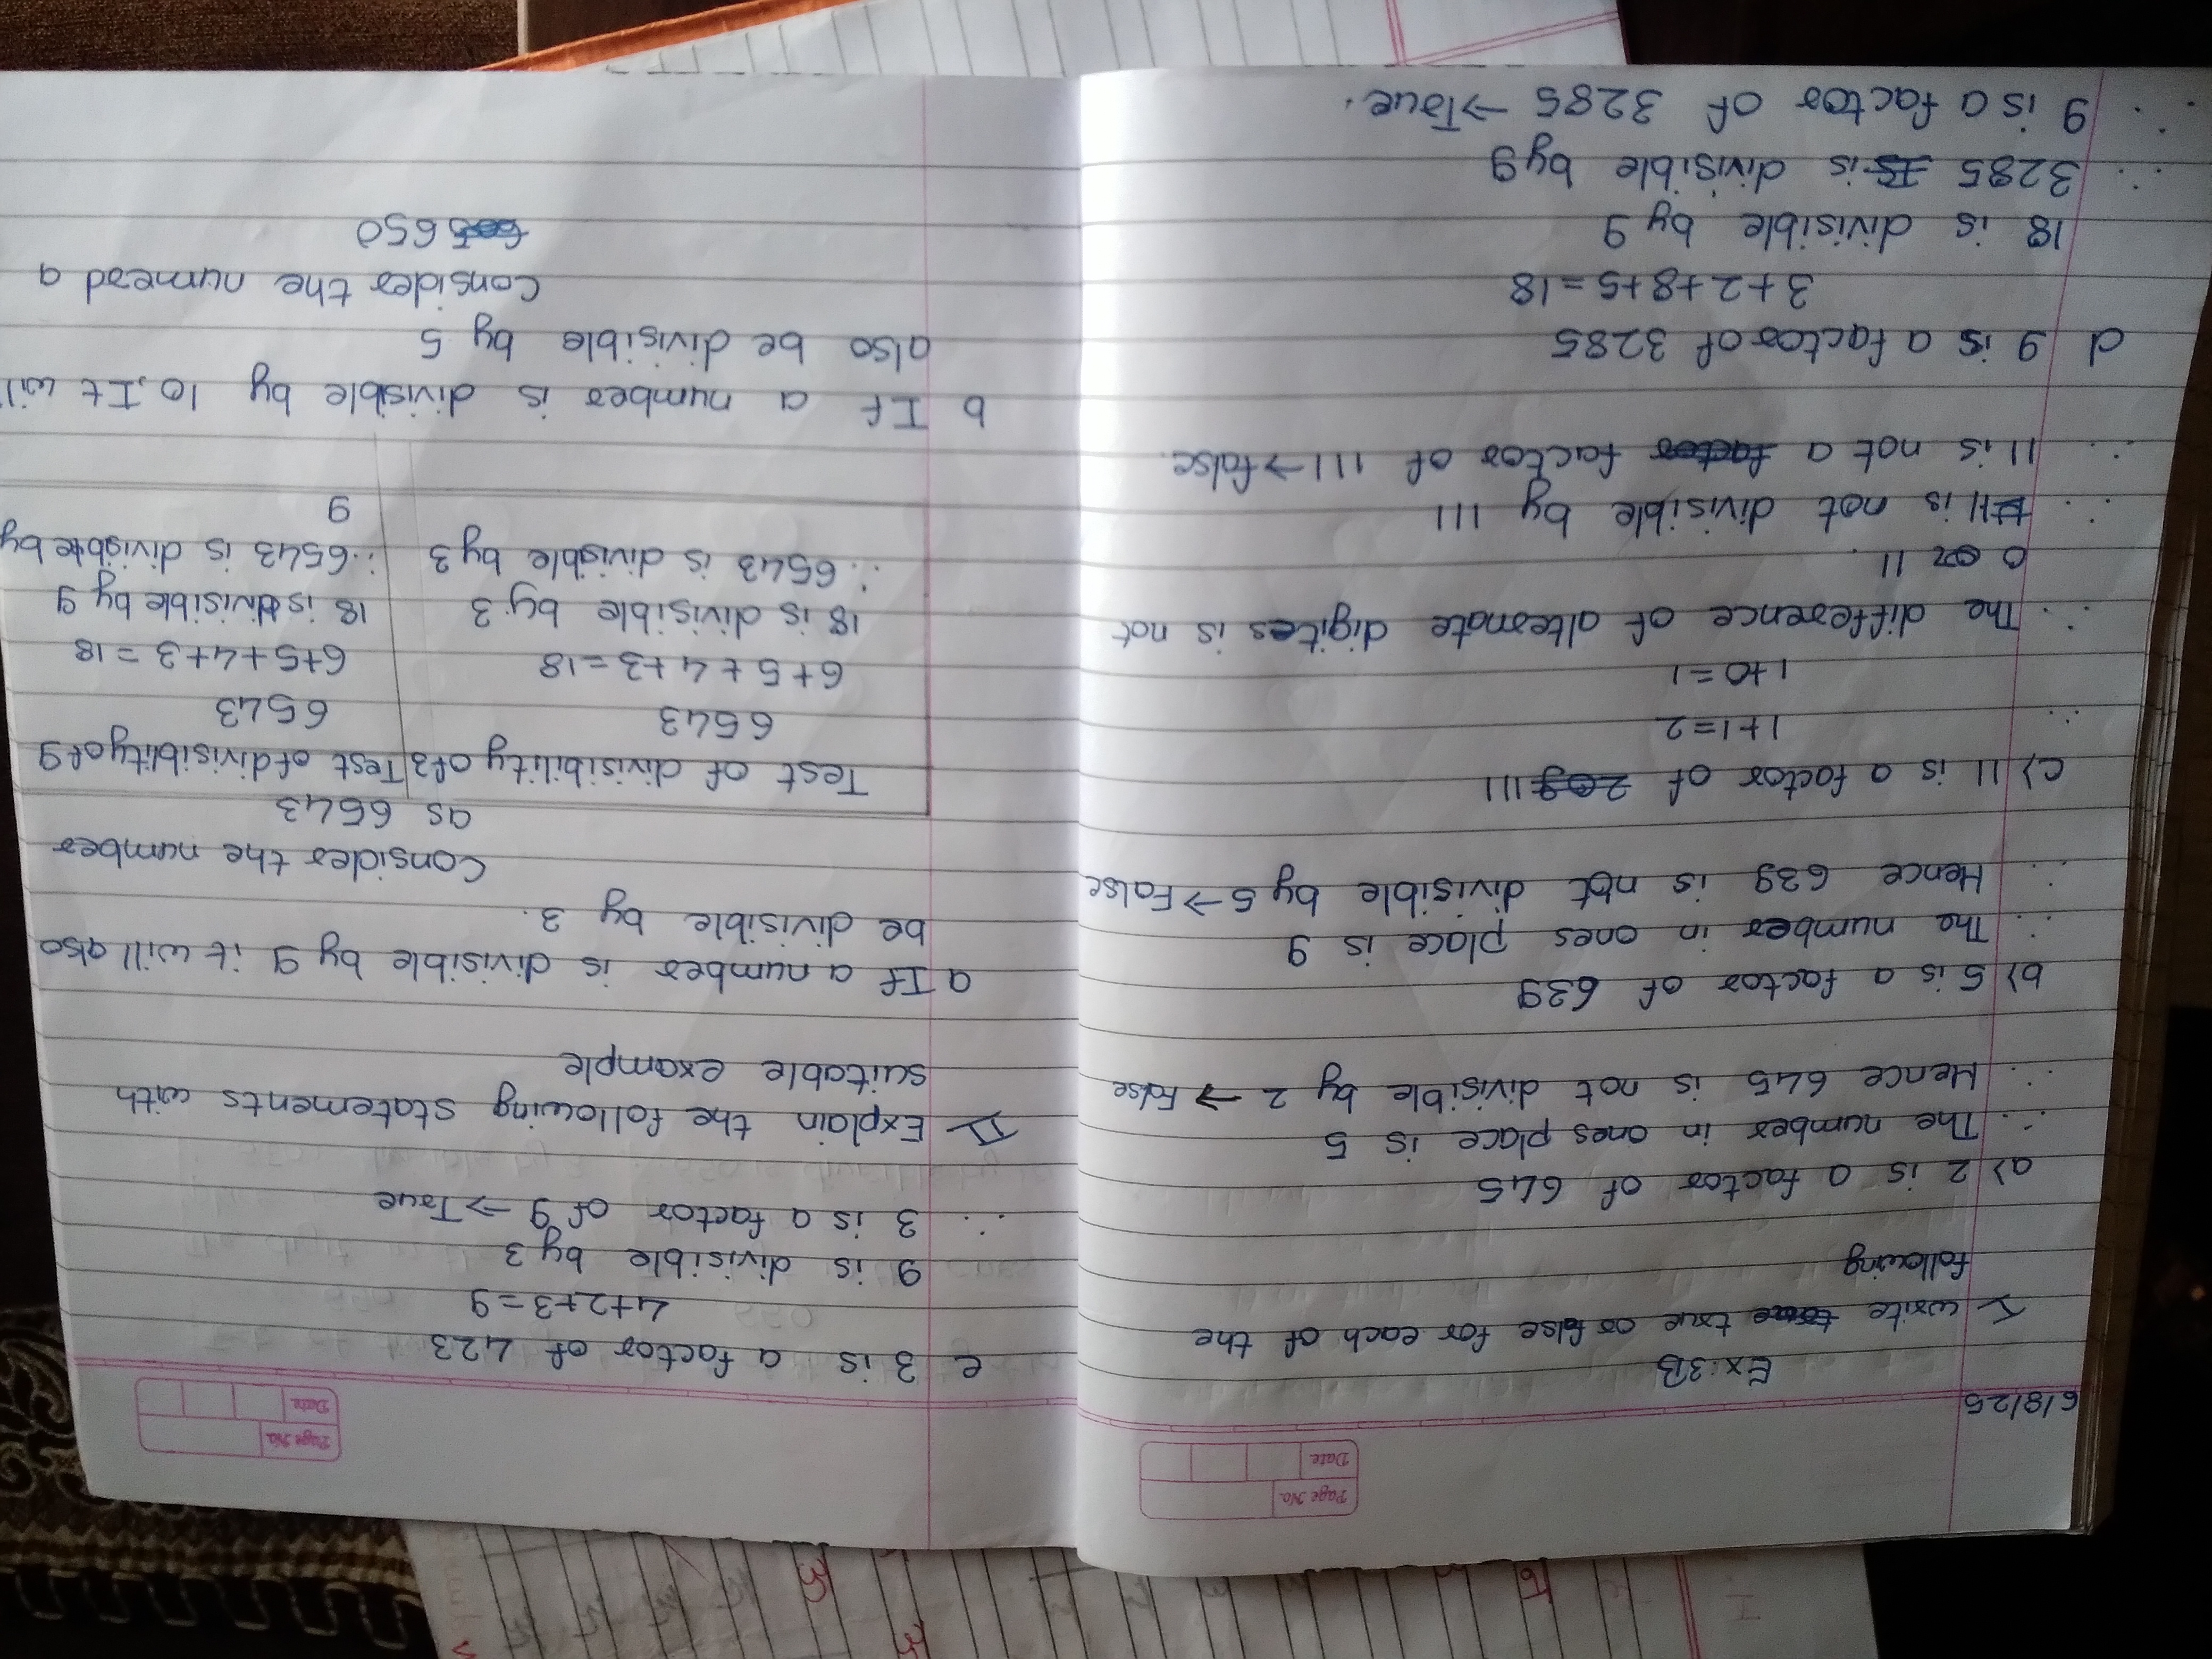 Page No.
Date
6/8/25
Ex:3B
I write true or false for each of the
following
a) 2 is a factor of 645
∴ The number in ones place is 5
∴ Hence 645 is not divisible by 2 → False
b) 5 is a factor of 639
∴ The number in ones place is 9
∴ Hence 639 is not divisible by 5 → False
c) 11 is a factor of 111
∴ 1+1=2
1+0=1
∴ The difference of alternate digites is not
0 or 11.
∴ 11 is not divisible by 111
∴ 11 is not a factor factor of 111 → false.
d 9 is a factor of 3285
3+2+8+5=18
18 is divisible by 9
∴ 3285 is is divisible by 9
∴ 9 is a factor of 3285 → True.
Page No.
Date
e 3 is a factor of 423
4+2+3=9
9 is divisible by 3
∴ 3 is a factor of 9 → True
II Explain the following statements with
suitable example
a If a number is divisible by 9 it will also
be divisible by 3.
Consider the number
as 6543
Test of divisibility of 3 Test of divisiblity of 9
6543 6543
6+5+4+3=18 6+5+4+3=18
18 is divisible by 3 18 is divisible by 9
∴ 6543 is divisible by 3 ∴ 6543 is divisible by
9
b If a number is divisible by 10, It will
also be divisible by 5
Consider the numerd a
605 650